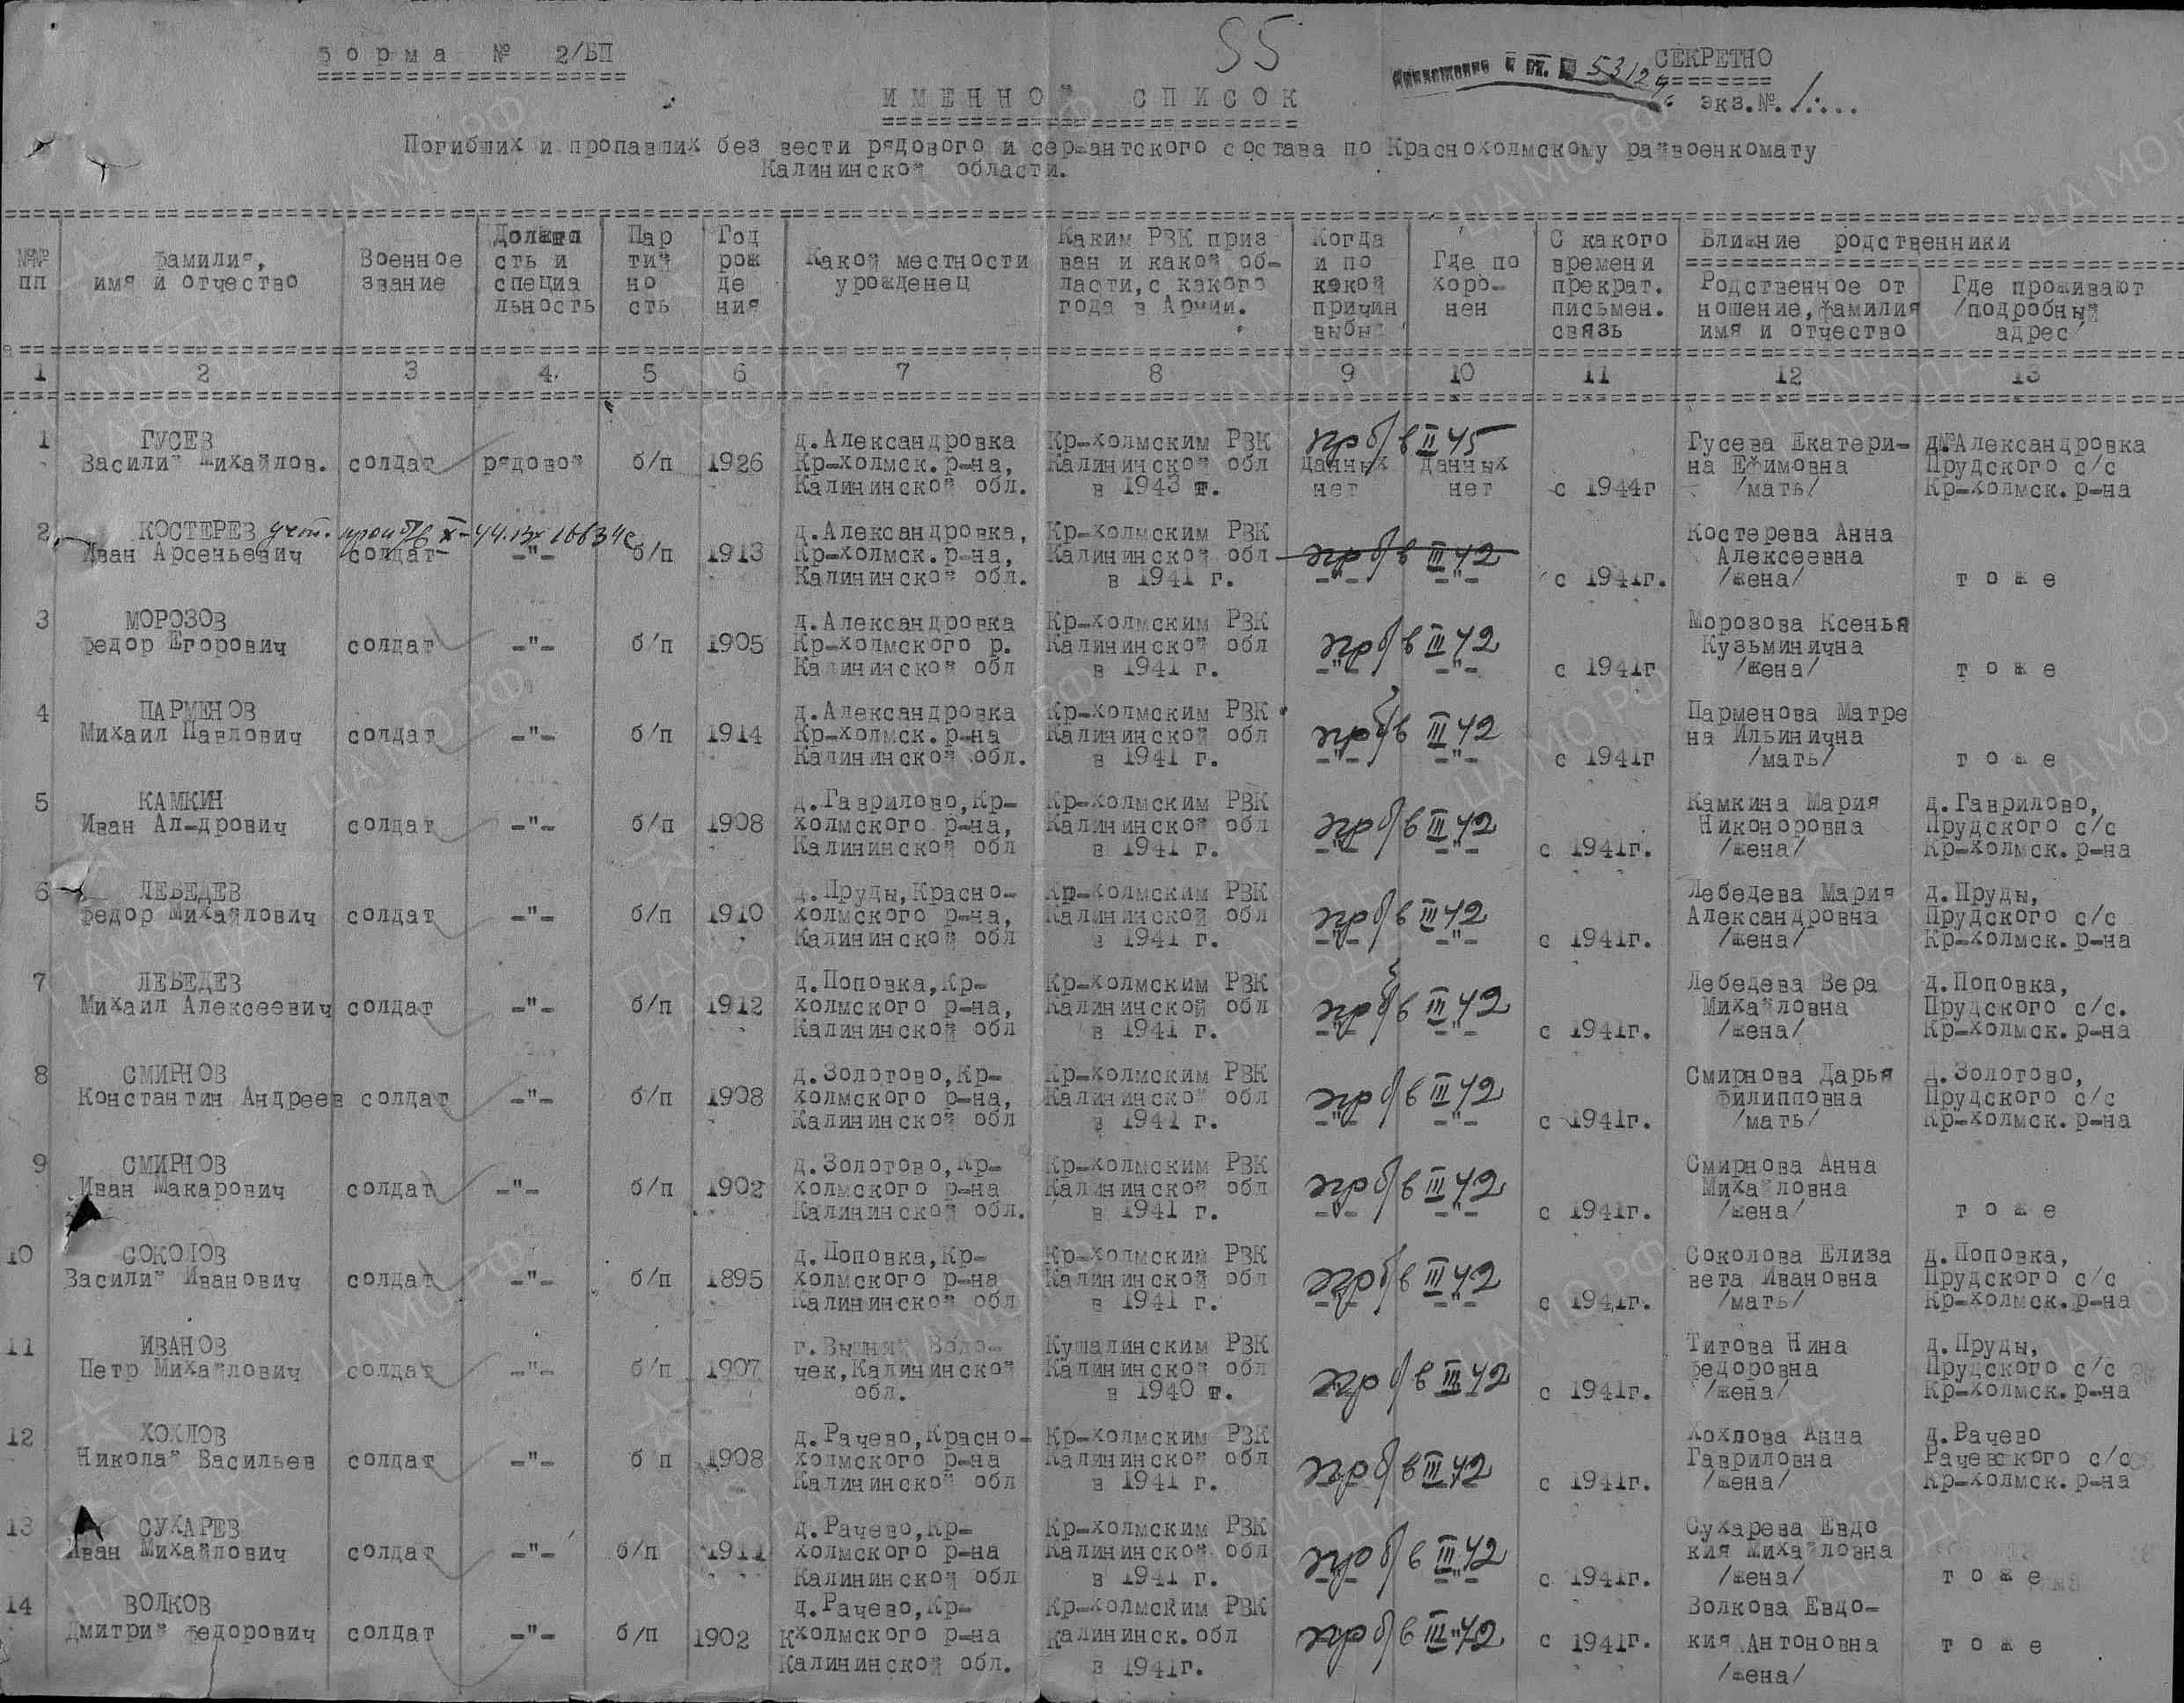 форма № 2/БП
55
СЕКРЕТНО
экз.№.1....
53124
ИМЕННОЙ СПИСОК
Погибших и пропавших без вести рядового и сержантского состава по Краснохолмскому райвоенкомату
Калининской области.
№№ пп
фамилия, имя и отчество
Военное звание
Должно сть и специа льность
Пар тий но сть
Год рож де ния
Какой местности урожденец
Каким РВК приз ван и какой об- ласти, с какого года в Армии.
Когда и по какой причин выбыл
Где по хоро- нен
С какого времени прекрат. письмен. связь
Ближние родственники
Родственное от ношение, фамилия имя и отчество
Где проживают /подробный адрес/
1 2 3 4. 5 6 7 8 9 10 11 12 13
1 ГУСЕВ д.Александровка Кр-холмским РВК п/б в II 45 Гусева Екатери- д.Александровка
Василий Михайлов. солдат рядовой б/п 1926 Кр-холмск.р-на, Калининской обл данных данных на Ефимовна Прудского с/с
Калининской обл. в 1943 г. нет нет с 1944г /мать/ Кр-холмск.р-на
2 КОСТЕРЕВ д.Александровка, Кр-холмским РВК Костерева Анна
Иван Арсеньевич солдат -"- б/п 1913 Кр-холмск.р-на, Калининской обл в III 42 Алексеевна
Калининской обл. в 1941 г. -"- -"- с 1941г. /жена/ тоже
3 МОРОЗОВ д.Александровка Кр-холмским РВК Морозова Ксенья
федор Егорович солдат -"- б/п 1905 Кр-холмского р. Калининской обл в III 42 Кузьминична
Калининской обл в 1941 г. -"- -"- с 1941г /жена/ тоже
4 ПАРМЕНОВ д.Александровка Кр-холмским РВК Парменова Матре
Михаил Павлович солдат -"- б/п 1914 Кр-холмск.р-на Калининской обл в III 42 на Ильинична
Калининской обл. в 1941 г. -"- -"- с 1941г /мать/ тоже
5 КАМКИН д.Гаврилово,Кр- Кр-холмским РВК Камкина Мария д.Гаврилово,
Иван Ал-дрович солдат -"- б/п 1908 холмского р-на, Калининской обл в III 42 Никоноровна Прудского с/с
Калининской обл в 1941 г. -"- -"- с 1941г. /жена/ Кр-холмск.р-на
6 ЛЕБЕДЕВ д.Пруды,Красно- Кр-холмским РВК Лебедева Мария д.Пруды,
федор Михайлович солдат -"- б/п 1910 холмского р-на, Калининской обл в III 42 Александровна Прудского с/с
Калининской обл в 1941 г. -"- -"- с 1941г. /жена/ Кр-холмск.р-на
7 ЛЕБЕДЕВ д.Поповка,Кр- Кр-холмским РВК Лебедева Вера д.Поповка,
Михаил Алексеевич солдат -"- б/п 1912 холмского р-на, Калининской обл в III 42 Михайловна Прудского с/с.
Калининской обл в 1941 г. -"- -"- с 1941г. /жена/ Кр-холмск.р-на
8 СМИРНОВ д.Золотово,Кр- Кр-холмским РВК Смирнова Дарья д.Золотово,
Константин Андреев солдат -"- б/п 1908 холмского р-на, Калининской обл в III 42 филипповна Прудского с/с
Калининской обл в 1941 г. -"- -"- с 1941г. /мать/ Кр-холмск.р-на
9 СМИРНОВ д.Золотово,Кр- Кр-холмским РВК Смирнова Анна
Иван Макарович солдат -"- б/п 1902 холмского р-на Калининской обл в III 42 Михайловна
Калининской обл. в 1941 г. -"- -"- с 1941г. /жена/ тоже
10 СОКОЛОВ д.Поповка,Кр- Кр-холмским РВК Соколова Елиза д.Поповка,
Василий Иванович солдат -"- б/п 1895 холмского р-на Калининской обл в III 42 вета Ивановна Прудского с/с
Калининской обл в 1941 г. -"- -"- с 1941г. /мать/ Кр-холмск.р-на
11 ИВАНОВ г.Вышний Воло- Кушалинским РВК Титова Нина д.Пруды,
Петр Михайлович солдат -"- б/п 1907 чек,Калининской Калининской обл в III 42 федоровна Прудского с/с
обл. в 1940 г. с 1941г. /жена/ Кр-холмск.р-на
12 ХОХЛОВ д.Рачево,Красно- Кр-холмским РВК Хохлова Анна д.Рачево
Николай Васильев солдат -"- б п 1908 холмского р-на Калининской обл в III 42 Гавриловна Рачевского с/с
Калининской обл в 1941 г. с 1941г. /жена/ Кр-холмск.р-на
13 СУХАРЕВ д.Рачево,Кр- Кр-холмским РВК Сухарева Евдо
Иван Михайлович солдат -"- б/п 1911 холмского р-на Калининской обл в III 42 кия Михайловна
Калининской обл в 1941 г. -"- -"- с 1941г. /жена/ тоже
14 ВОЛКОВ д.Рачево,Кр- Кр-холмским РВК Волкова Евдо-
Дмитрий федорович солдат -"- б/п 1902 холмского р-на Калининск.обл в III 42 с 1941г. кия Антоновна тоже
Калининской обл. в 1941г. /жена/